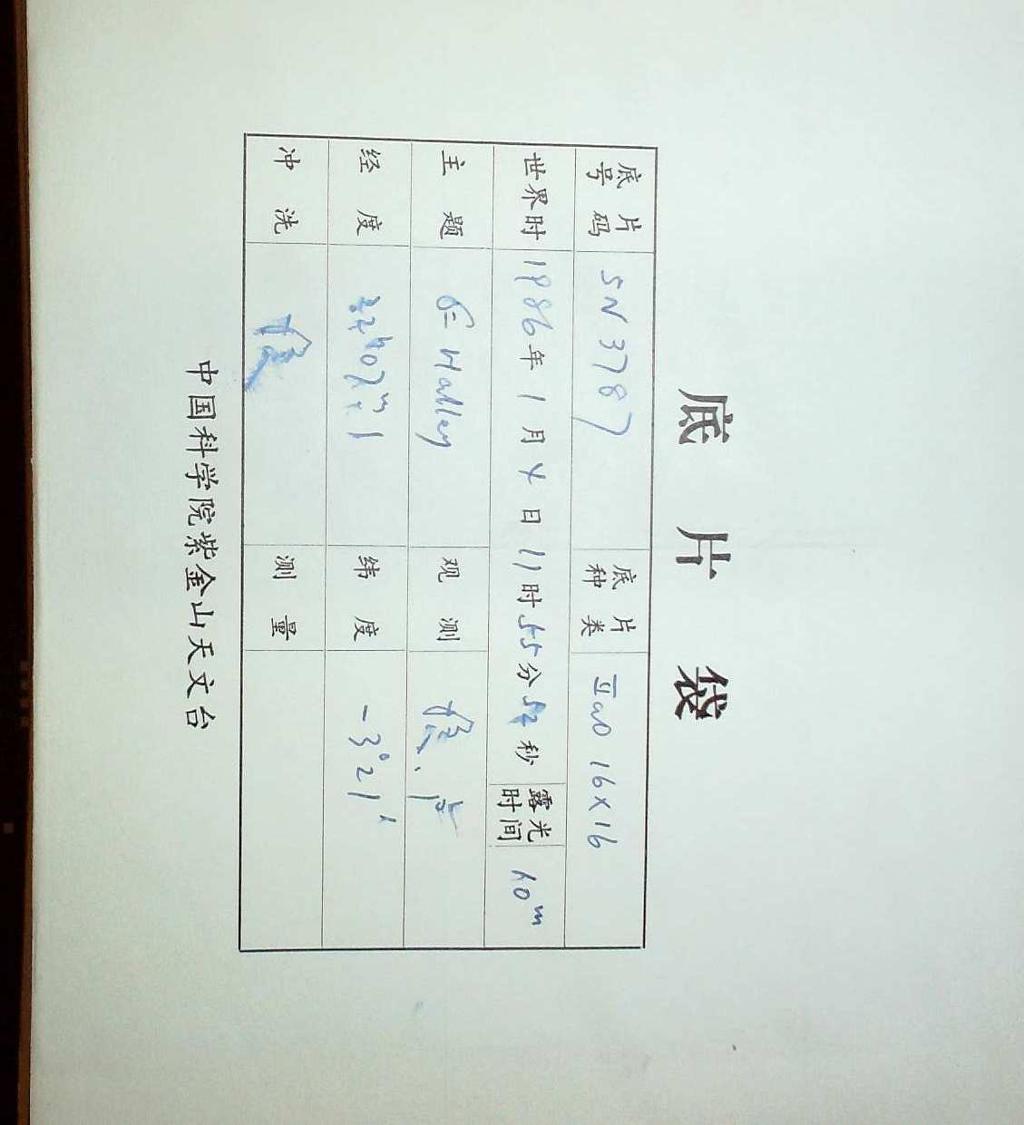 底片袋
底片号码 SN 3787 底片种类 IIaO 16×16
世界时 1986年1月4日11时55分52秒 露光时间 10m
主题 Halley 观测
经度 22h07m.1 纬度 -3°21′
冲洗 测量
中国科学院紫金山天文台